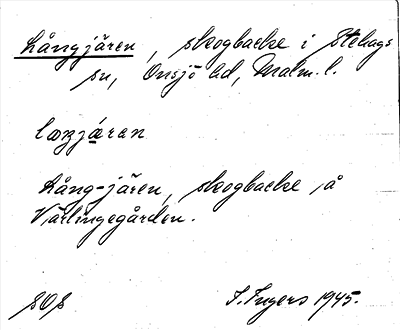 Långjären, skogbacke i Stehags
sn, Onsjö hd, Malm. l.
Lång-jären, skogbacke på
Värlingegården.
SOS I. Ingers 1945.